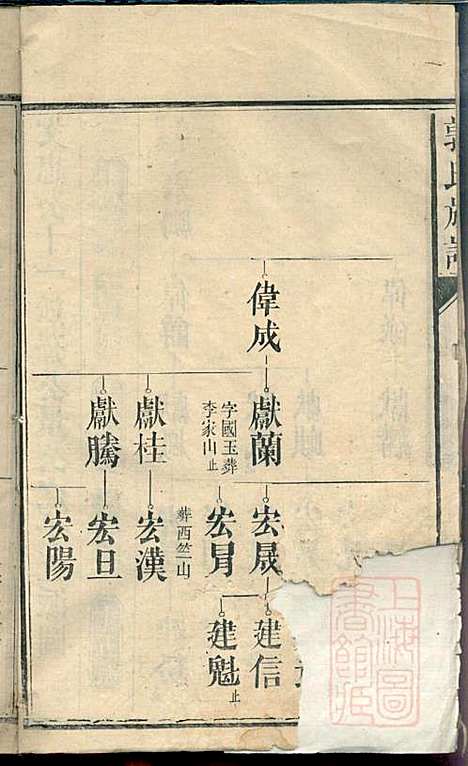 郭氏族譜
偉成
獻蘭
字國玉葬
李家山止
獻桂
獻騰
宏晟
宏冐
葬西竺山
宏漢
宏旦
宏陽
建信
建魁止
上海圖書館藏